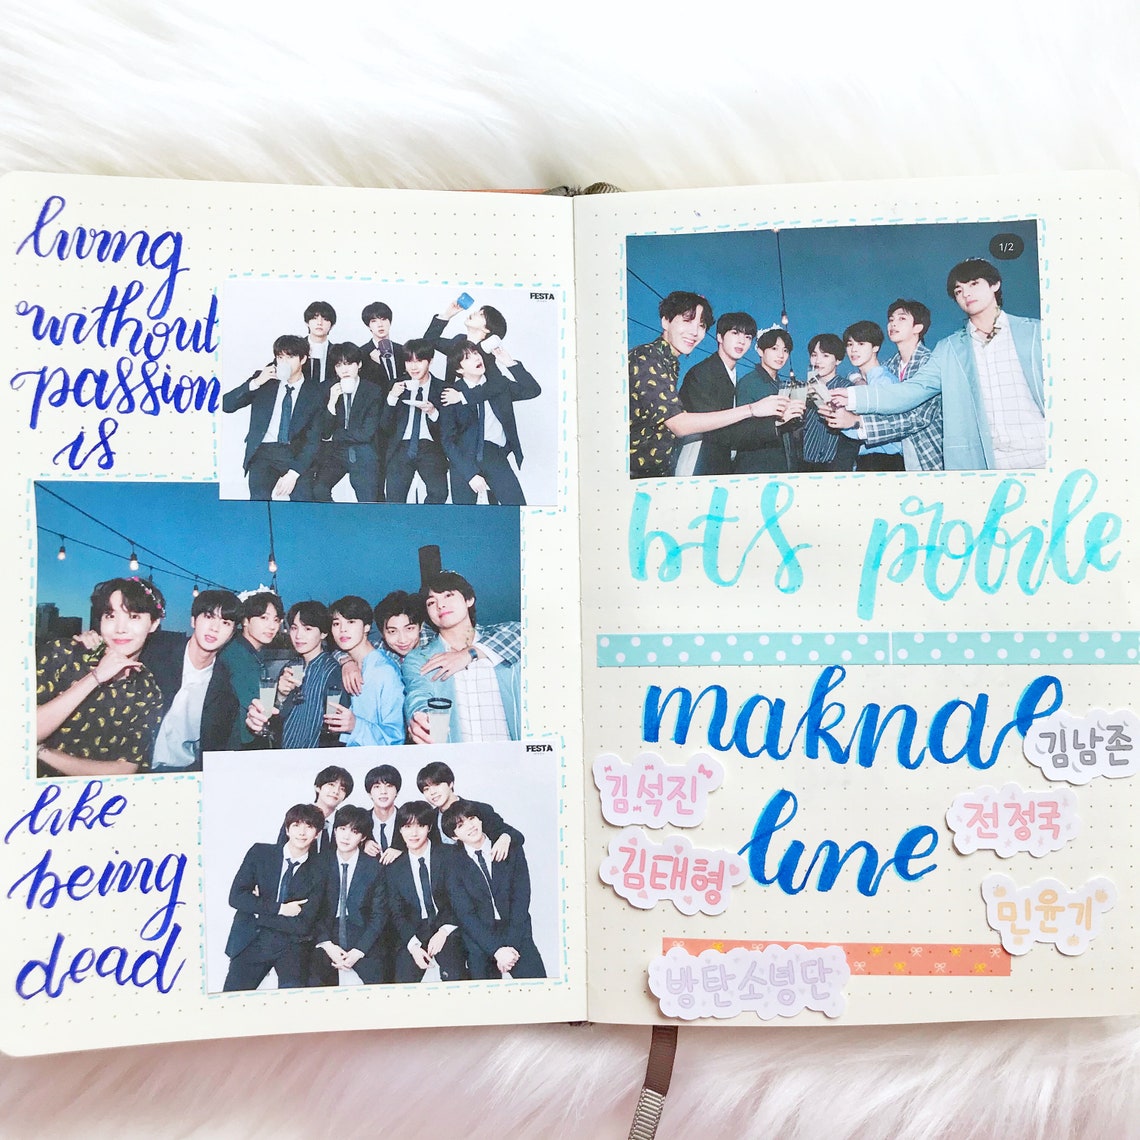 living
without
passion
is
FESTA
FESTA
like
being
dead
1/2
bts profile
maknae
line
김남존
김석진
전정국
김태형
민윤기
방탄소년단